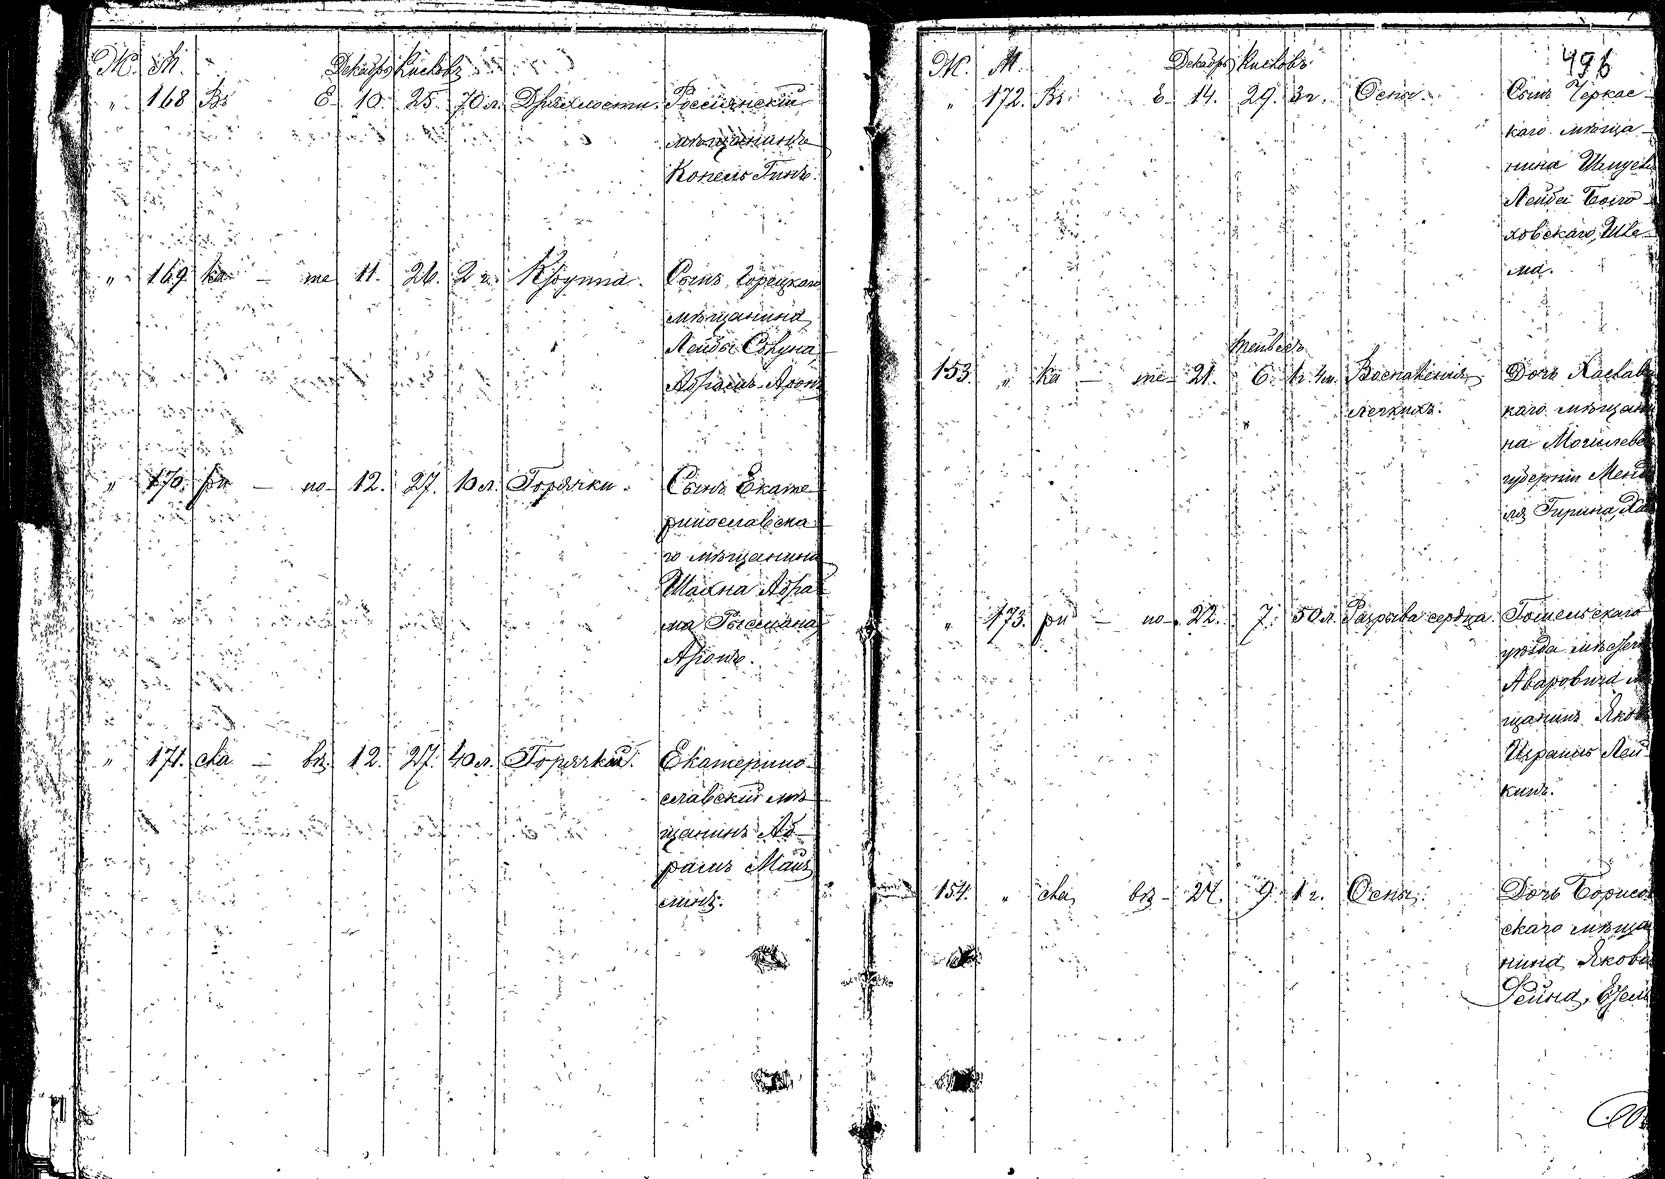 Ж. М. Декабрь Кислевъ
„ 168 Въ Е 10. 25. 70 л. Дряхлости. Россіянскій
мѣщанинъ
Копель Гинъ.
„ 169 ка — те 11. 26. 2 г. Крупа. Сынъ Горецкаго
мѣщанина
Лейбы
Абрамъ-Аронъ
„ 170. ри — но- 12. 27. 10 л. Горячки. Сынъ Екате-
ринославска-
го мѣщанина
Шахна Абра-
ма Рысмана,
Аронъ.
„ 171. сла — въ 12. 27. 40 л. Горячки. Екатерино-
славскій мѣ-
щанинъ Аб-
рамъ
496
Ж. М. Декабрь Кислевъ
„ 172. Въ Е- 14. 29. 3 г. Оспы. Сынъ Черкас-
каго мѣща-
нина
Лейбы Бого-
ховскаго, Шле-
ма.
Тейвесъ
153. „ ка — те- 21. 6. 1 г. 4 м. Воспаленія Дочь Хаслав
легкихъ. каго мѣщани
на Могилевс
губерніи Менд
ля Гирина,
„ 173. ри — но- 22. 7. 50 л. Разрыва сердца. Гомельскаго
уѣзда
щанинъ Яков
Израиль Лей-
кинъ.
154. „ сла въ- 24. 9. 1 г. Оспы. Дочь Борисов
скаго мѣща
нина Якова
Рейна,